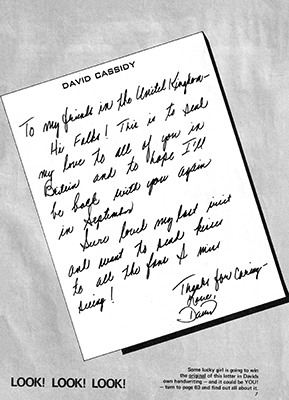 DAVID CASSIDY
To my friends in the United Kingdom—
Hi Folks! This is to send
my love to all of you in
Britain and to hope I'll
be back with you again
in September
Sure loved my last visit
and want to send kisses
to all the fans I miss
seeing!
Thanks for Caring—
Love,
David
Some lucky girl is going to win
the original of this letter in Davids
own handwriting — and it could be YOU!
— turn to page 63 and find out all about it.
LOOK! LOOK! LOOK!
7